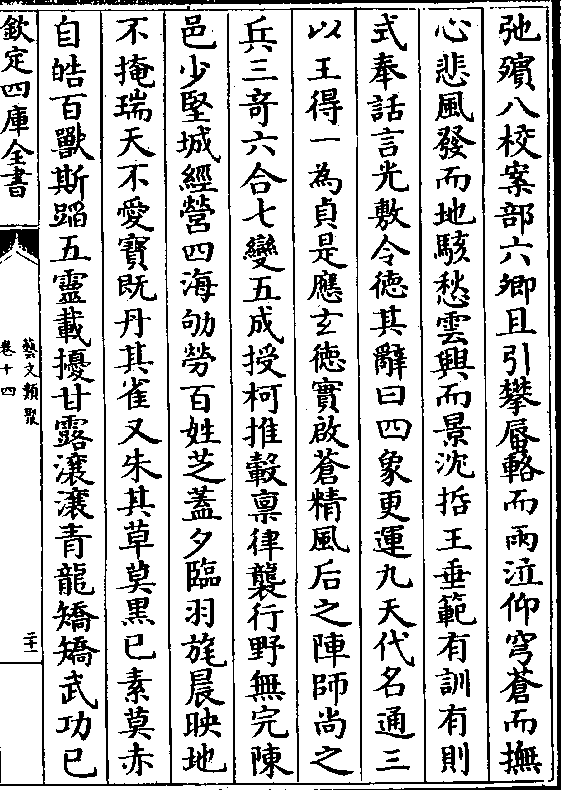 弛殯八校案部六卿且引攀蜃輅而雨泣仰穹蒼而撫
心悲風發而地駭愁雲興而景沈哲王垂範有訓有則
式奉話言光敷令德其辭曰四象更運九天代名通三
以王得一為貞是應玄德實啟蒼精風后之陣師尚之
兵三竒六合七變五成授柯推轂稟律襲行野無完陳
邑少堅城經營四海劬勞百姓芝蓋夕臨羽旄晨映地
不掩瑞天不愛寶既丹其雀又朱其草莫黑已素莫赤
自皓百獸斯蹈五靈載擾甘露瀼瀼青龍矯矯武功已
欽定四庫全書
藝文類聚
卷十四
二十一